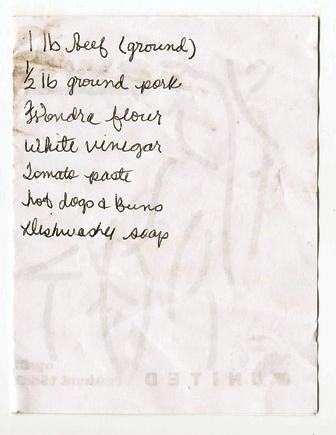 1 lb Beef (ground)
½ lb ground pork
Wondra flour
White vinegar
Tomato paste
hot dogs & Buns
Dishwasher soap
UNITED